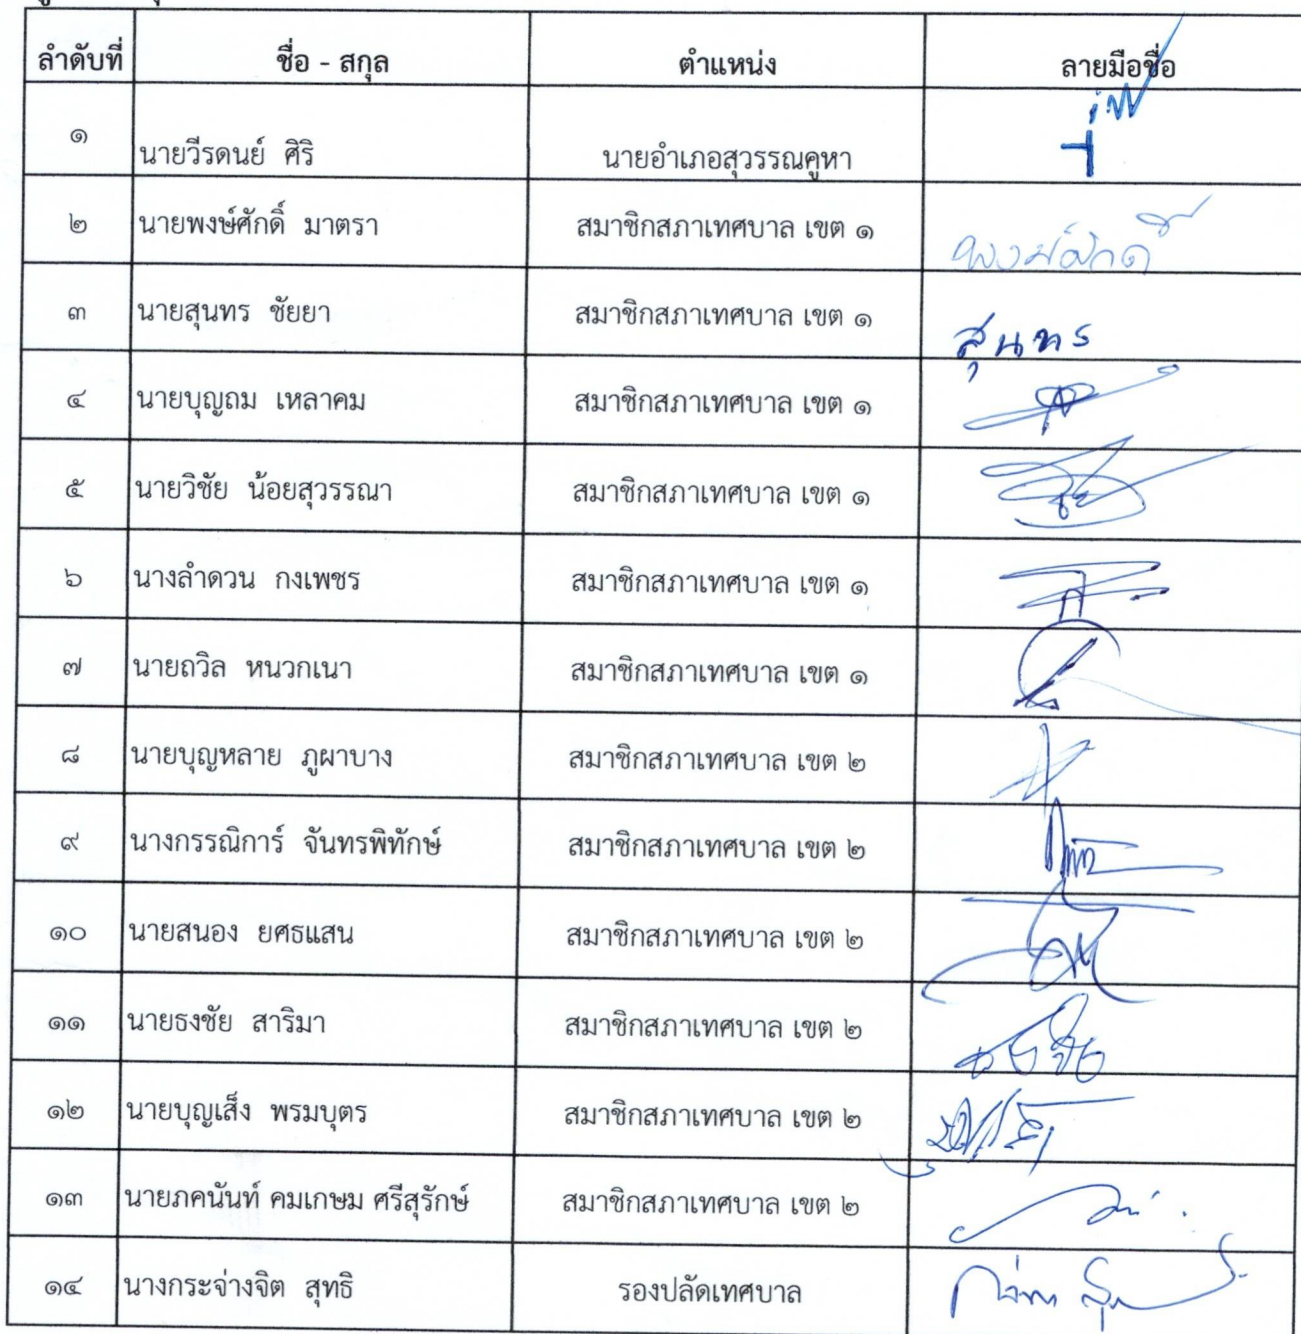 ลำดับที่ ชื่อ - สกุล ตำแหน่ง ลายมือชื่อ
๑ นายวีรดนย์ ศิริ นายอำเภอสุวรรณคูหา
๒ นายพงษ์ศักดิ์ มาตรา สมาชิกสภาเทศบาล เขต ๑ พงษ์ศักดิ์
๓ นายสุนทร ชัยยา สมาชิกสภาเทศบาล เขต ๑ สุนทร
๔ นายบุญถม เหลาคม สมาชิกสภาเทศบาล เขต ๑
๕ นายวิชัย น้อยสุวรรณา สมาชิกสภาเทศบาล เขต ๑
๖ นางลำดวน กงเพชร สมาชิกสภาเทศบาล เขต ๑
๗ นายถวิล หนวกเนา สมาชิกสภาเทศบาล เขต ๑
๘ นายบุญหลาย ภูผาบาง สมาชิกสภาเทศบาล เขต ๒
๙ นางกรรณิการ์ จันทรพิทักษ์ สมาชิกสภาเทศบาล เขต ๒
๑๐ นายสนอง ยศธแสน สมาชิกสภาเทศบาล เขต ๒
๑๑ นายธงชัย สาริมา สมาชิกสภาเทศบาล เขต ๒ ธงชัย
๑๒ นายบุญเส็ง พรมบุตร สมาชิกสภาเทศบาล เขต ๒
๑๓ นายภคนันท์ คมเกษม ศรีสุรักษ์ สมาชิกสภาเทศบาล เขต ๒
๑๔ นางกระจ่างจิต สุทธิ รองปลัดเทศบาล